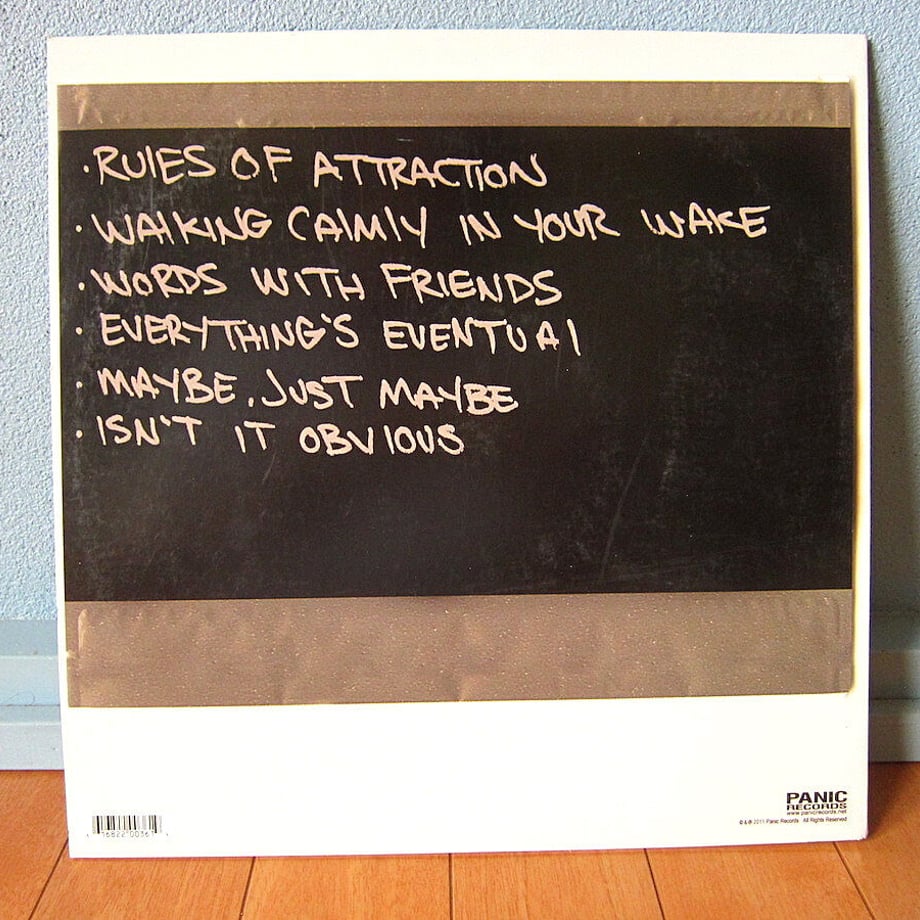 ·RUlES OF ATTRACTION
·WAlKING CAlMlY IN YOUR WAKE
·WORDS WITH FRIENDS
·EVERYTHING'S EVENTUAl
·MAYBE, JUST MAYBE
·ISN'T IT OBVIOUS
PANIC
RECORDS
www.panicrecords.net
©&℗ 2011 Panic Records All Rights Reserved